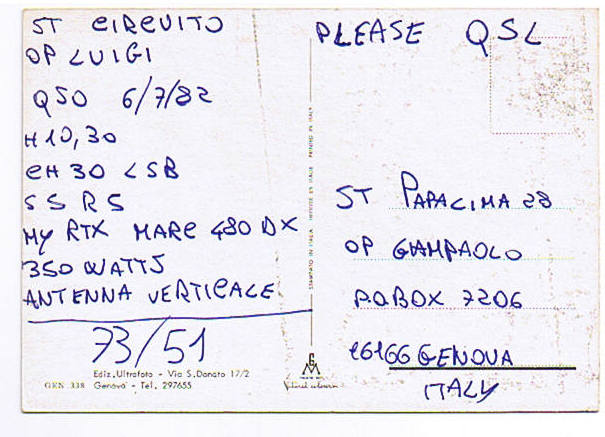 ST CIRCUITO
OP LUIGI
QSO 6/7/82
H 10,30
CH 30 LSB
S 5 R 5
MY RTX MARC 480 DX
350 WATTS
ANTENNA VERTICALE
73/51
Ediz. Ultrafoto - Via S. Donato 17/2
GEN 338 Genova - Tel. 297655
STAMPATO IN ITALIA PRINTED IN ITALY
PLEASE QSL
ST PAPACIMA 28
OP GIAMPAOLO
P.O. BOX 7206
16166 GENOVA
ITALY